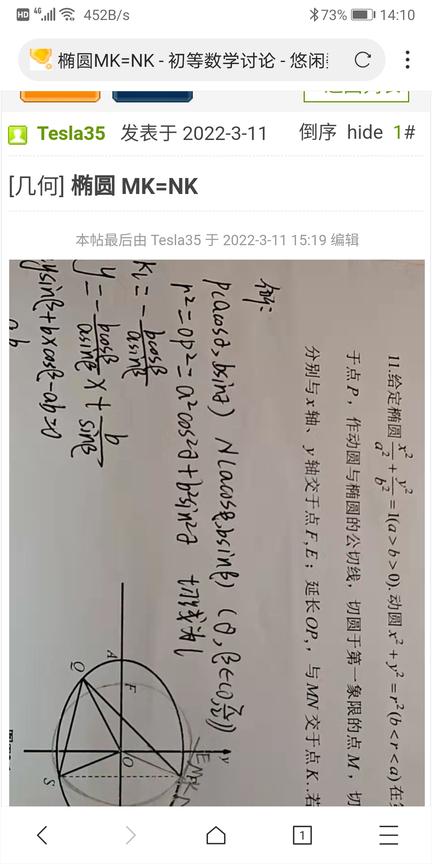 HD 4G 452B/s 73% 14:10
椭圆MK=NK - 初等数学讨论 - 悠闲
Tesla35 发表于 2022-3-11 倒序 hide 1#
[几何] 椭圆 MK=NK
本帖最后由 Tesla35 于 2022-3-11 15:19 编辑
11.给定椭圆 x²/a² + y²/b² = 1(a > b > 0). 动圆 x² + y² = r²(b < r < a) 在
于点 P，作动圆与椭圆的公切线，切圆于第一象限的点 M，切
分别与 x 轴、y 轴交于点 F, E；延长 OP,，与 MN 交于点 K..若
P(acosθ, bsinθ) N(acosβ, bsinβ) (θ, β∈(0, π/2))
r² = OP² = a²cos²θ + b²sin²θ 切线为 l
k_l = - bcosβ/asinβ
y = - bcosβ/asinβ x + b/sinβ
aysinβ + bxcosβ - ab = 0
y
E
A
F
O
Q
S
1